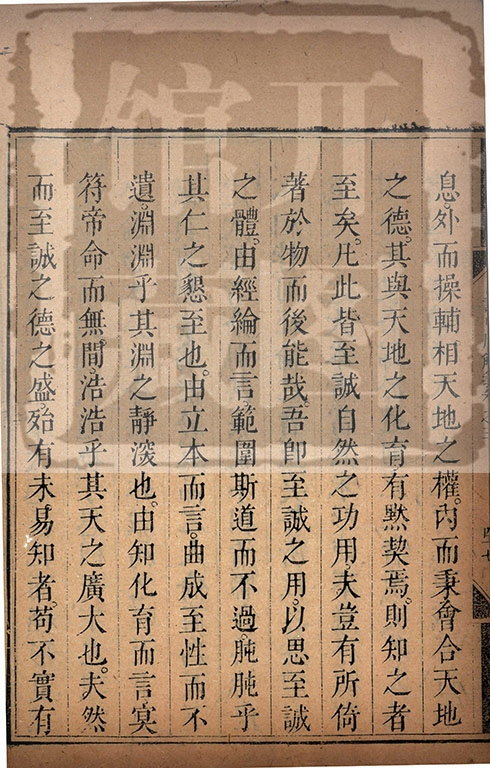 息。外而操輔相天地之權。內而秉會合天地
之德。其與天地之化育。有黙契焉。則知之者
至矣。凡此皆至誠自然之功用。夫豈有所倚
著於物而後能哉。吾即至誠之用。以思至誠
之體。由經綸而言。範圍斯道而不過。肫肫乎
其仁之懇至也。由立本而言。曲成至性而不
遺。淵淵乎其淵之靜深也。由知化育而言。冥
符帝命而無間。浩浩乎其天之廣大也。夫然
而至誠之德之盛。殆有未易知者。苟不實有